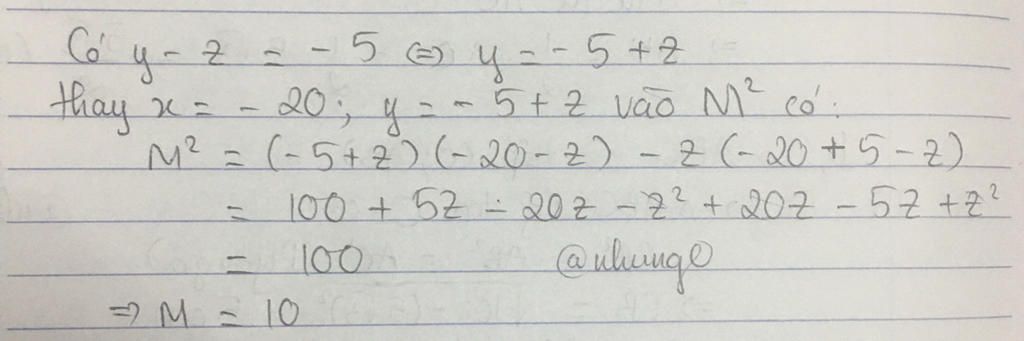 Có y - z = -5 ⇔ y = -5 + z
thay x = -20; y = -5 + z vào M² có:
M² = (-5 + z)(-20 - z) - z(-20 + 5 - z)
= 100 + 5z - 20z - z² + 20z - 5z + z²
= 100 @nhung
⇒ M = 10